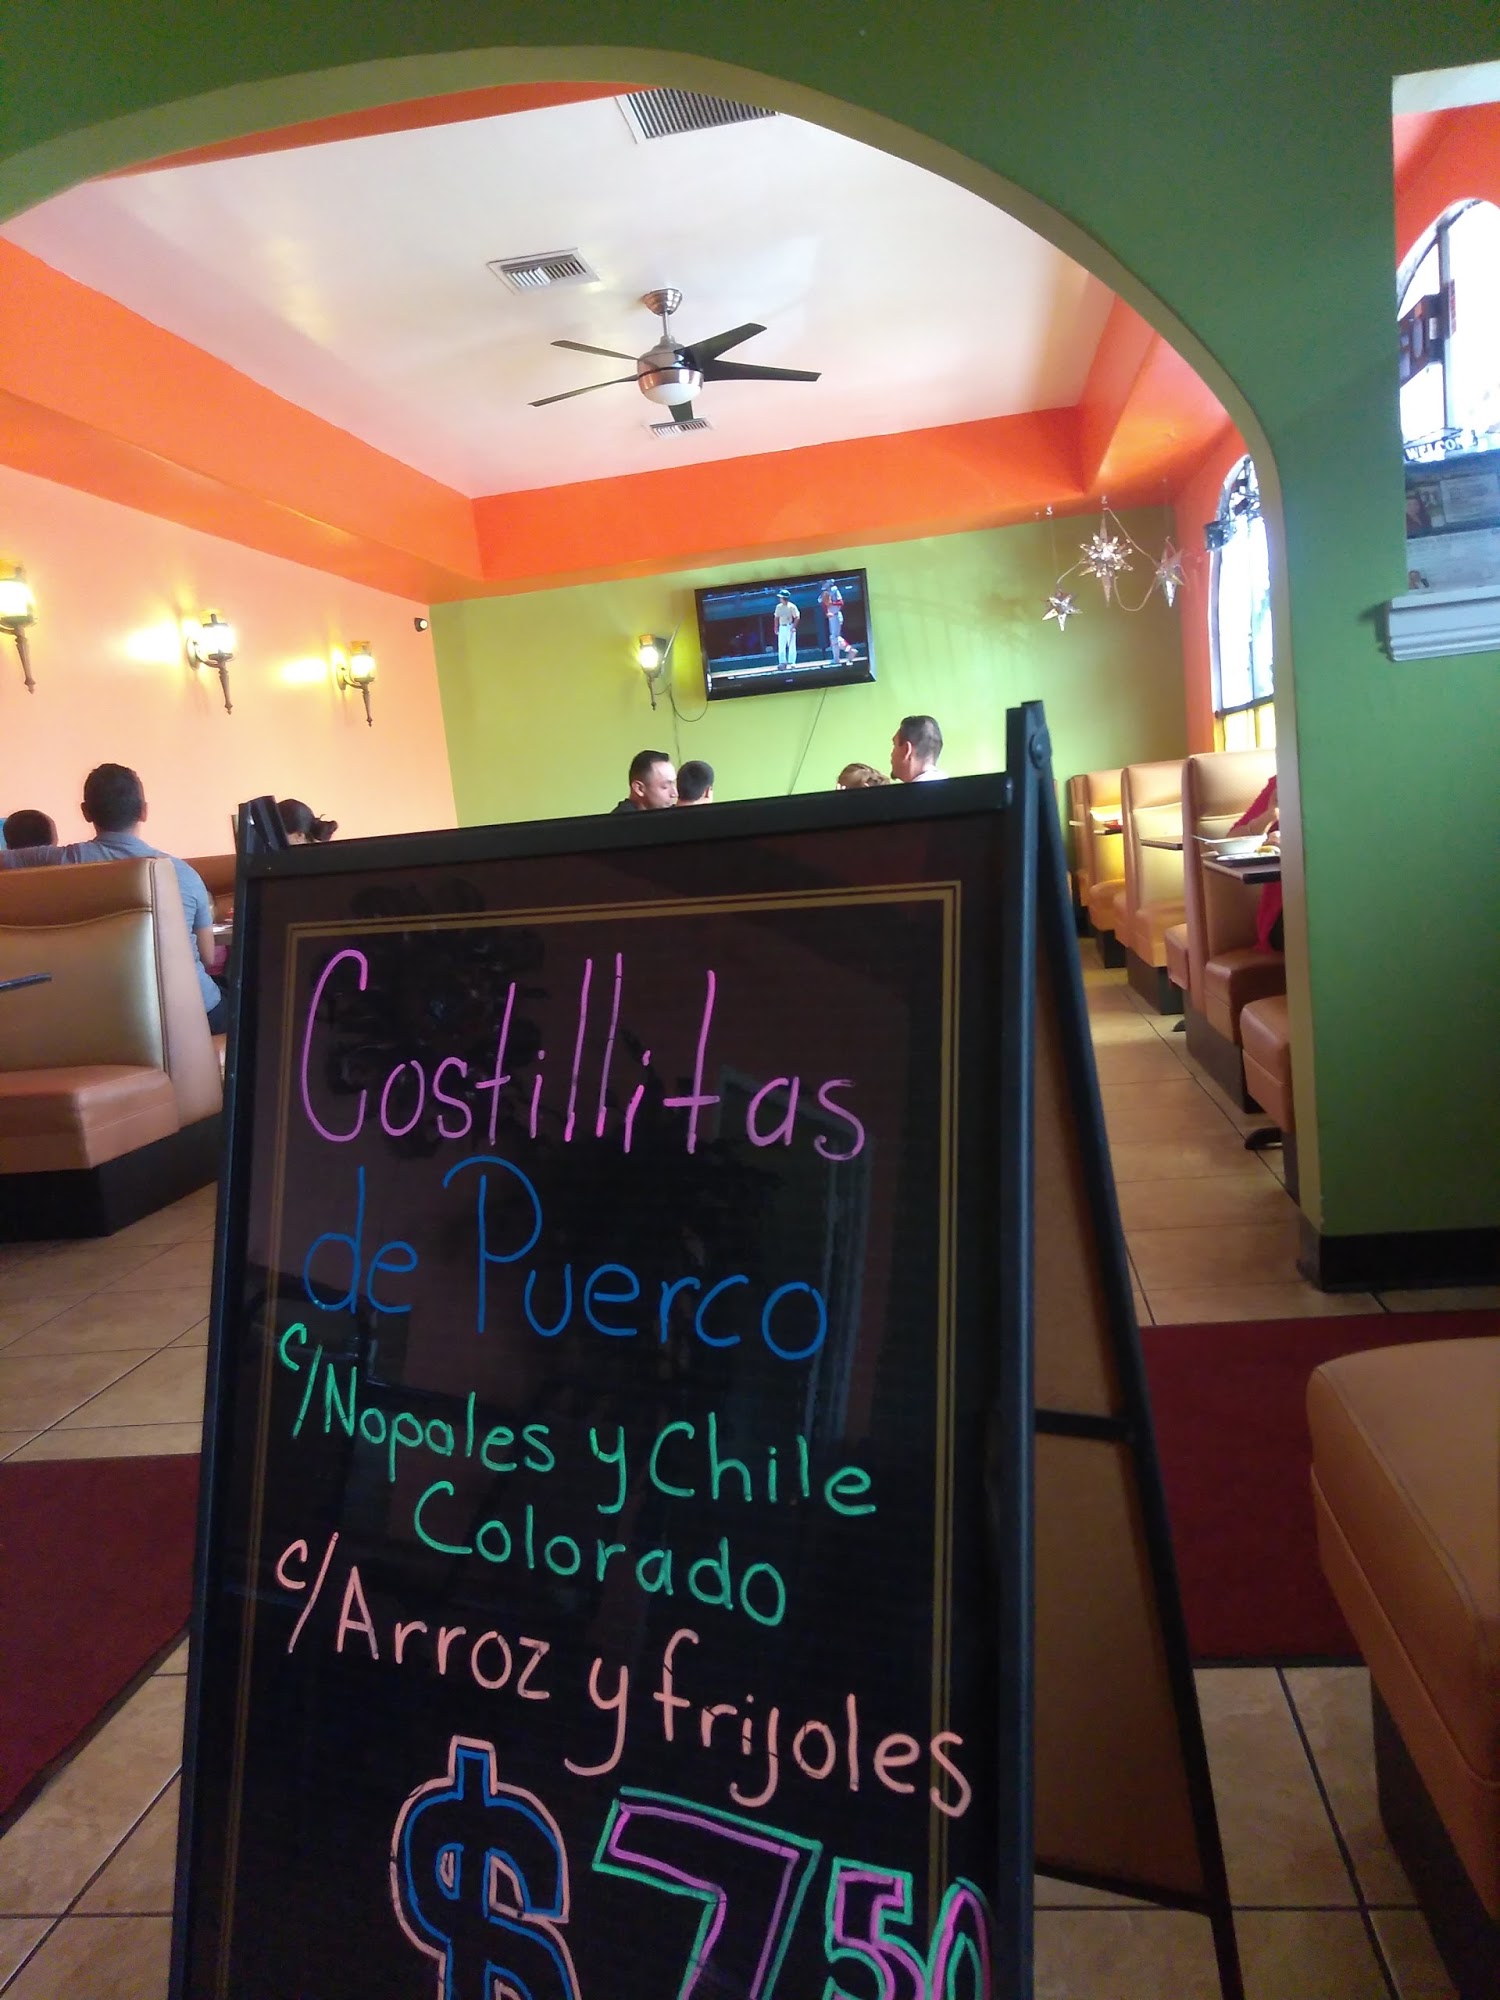 Costillitas
de Puerco
c/Nopales y Chile
Colorado
c/Arroz y frijoles
$750